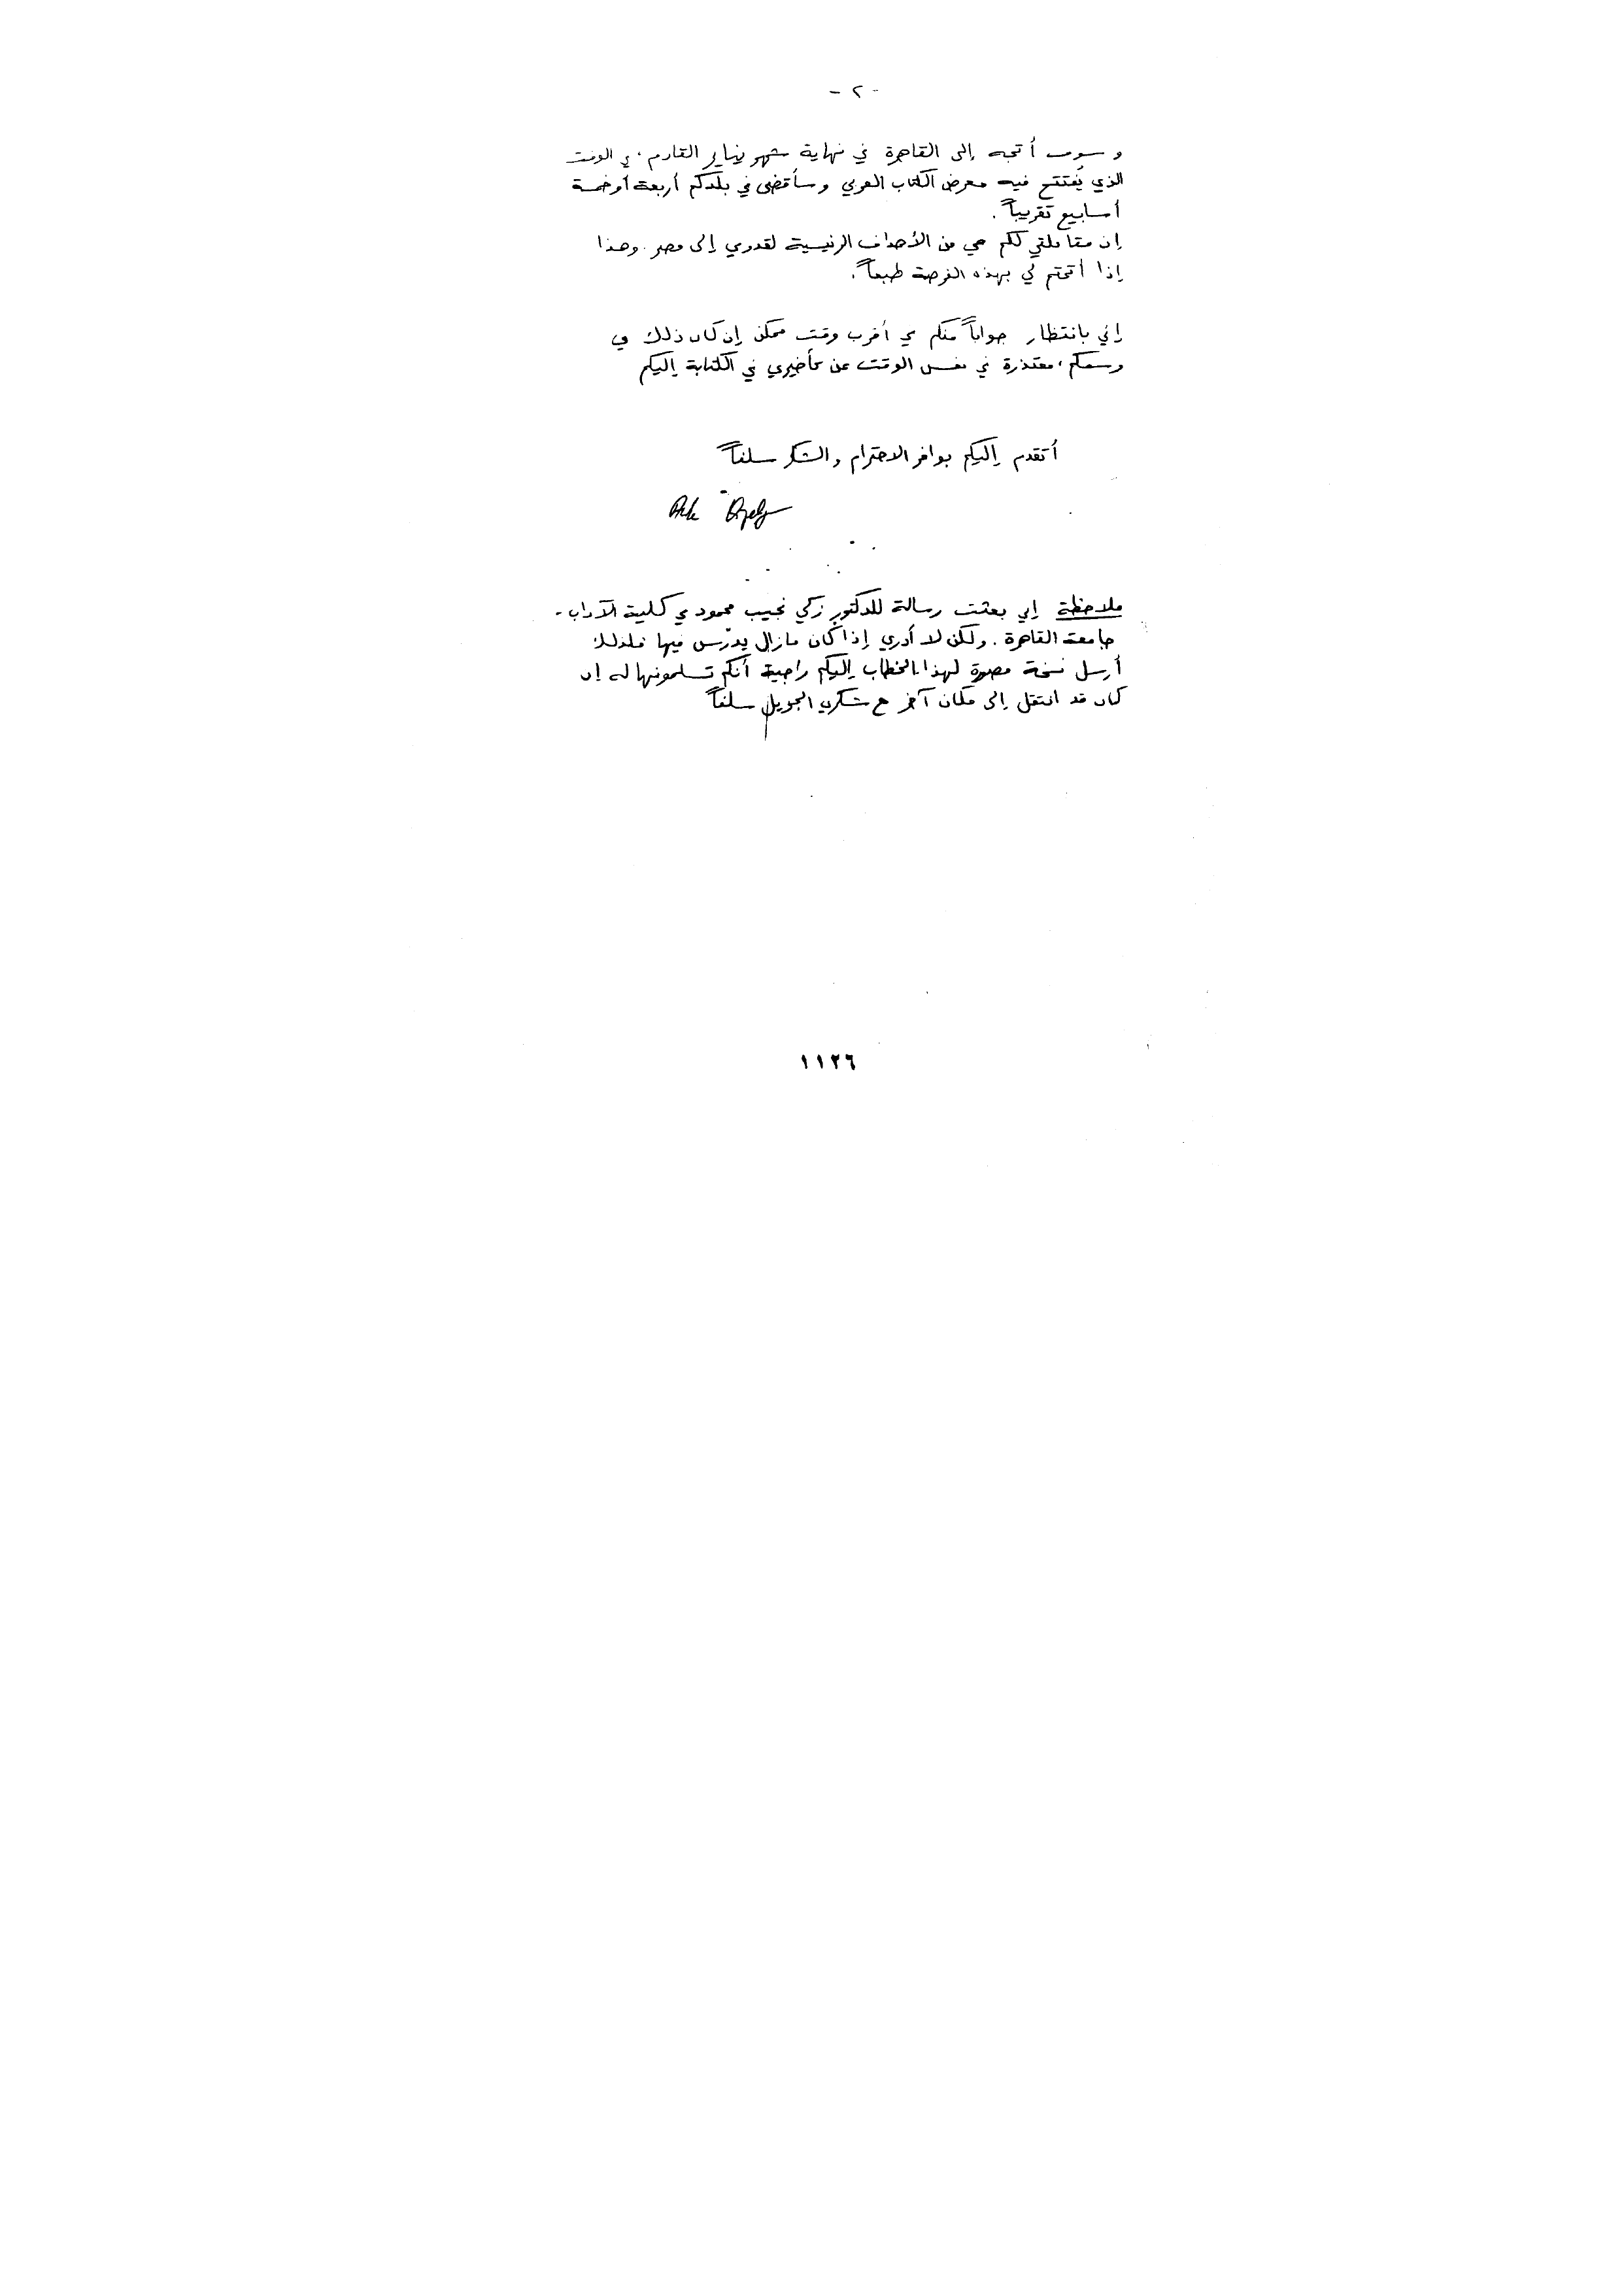 - ٢ -
وسوف أتجه إلى القاهرة في نهاية شهر يناير القادم، في الوقت
الذي يُفتتح فيه معرض الكتاب العربي وسأقضى في بلدكم أربعة أو خمسة
أسابيع تقريباً.
إن مقابلتي لكم هي من الأهداف الرئيسية لقدومي إلى مصر. وهذا
إذا أتحتم لي بهذه الفرصة طبعاً.
إني بانتظار جواباً منكم في أقرب وقت ممكن إن كان ذلك في
وسعكم، معتذرة في نفس الوقت عن تأخيري في الكتابة إليكم
أتقدم إليكم بوافر الاحترام والشكر سلفاً
ملاحظة إني بعثت رسالة للدكتور زكي نجيب محمود في كلية الآداب -
جامعة القاهرة. ولكن لا أدري إذا كان مازال يدرّس فيها فلذلك
أرسل نسخة مصورة لهذا الخطاب إليكم راجية أنكم تسلمونها له إن
كان قد انتقل إلى مكان آخر مع شكري الجزيل سلفاً
١١٢٦